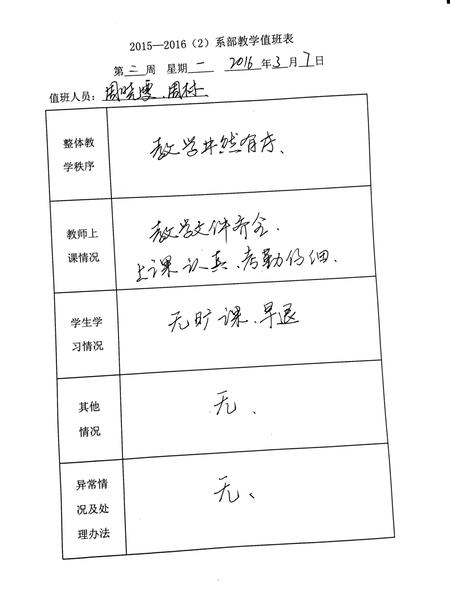 2015—2016（2）系部教学值班表
第 二 周 星期 一 2016 年 3 月 7 日
值班人员：周晓雪、周林
整体教
学秩序
教学井然有序、
教师上
课情况
教学文件齐全、
上课认真、考勤仔细.
学生学
习情况
无旷课、早退
其他
情况
无、
异常情
况及处
理办法
无、